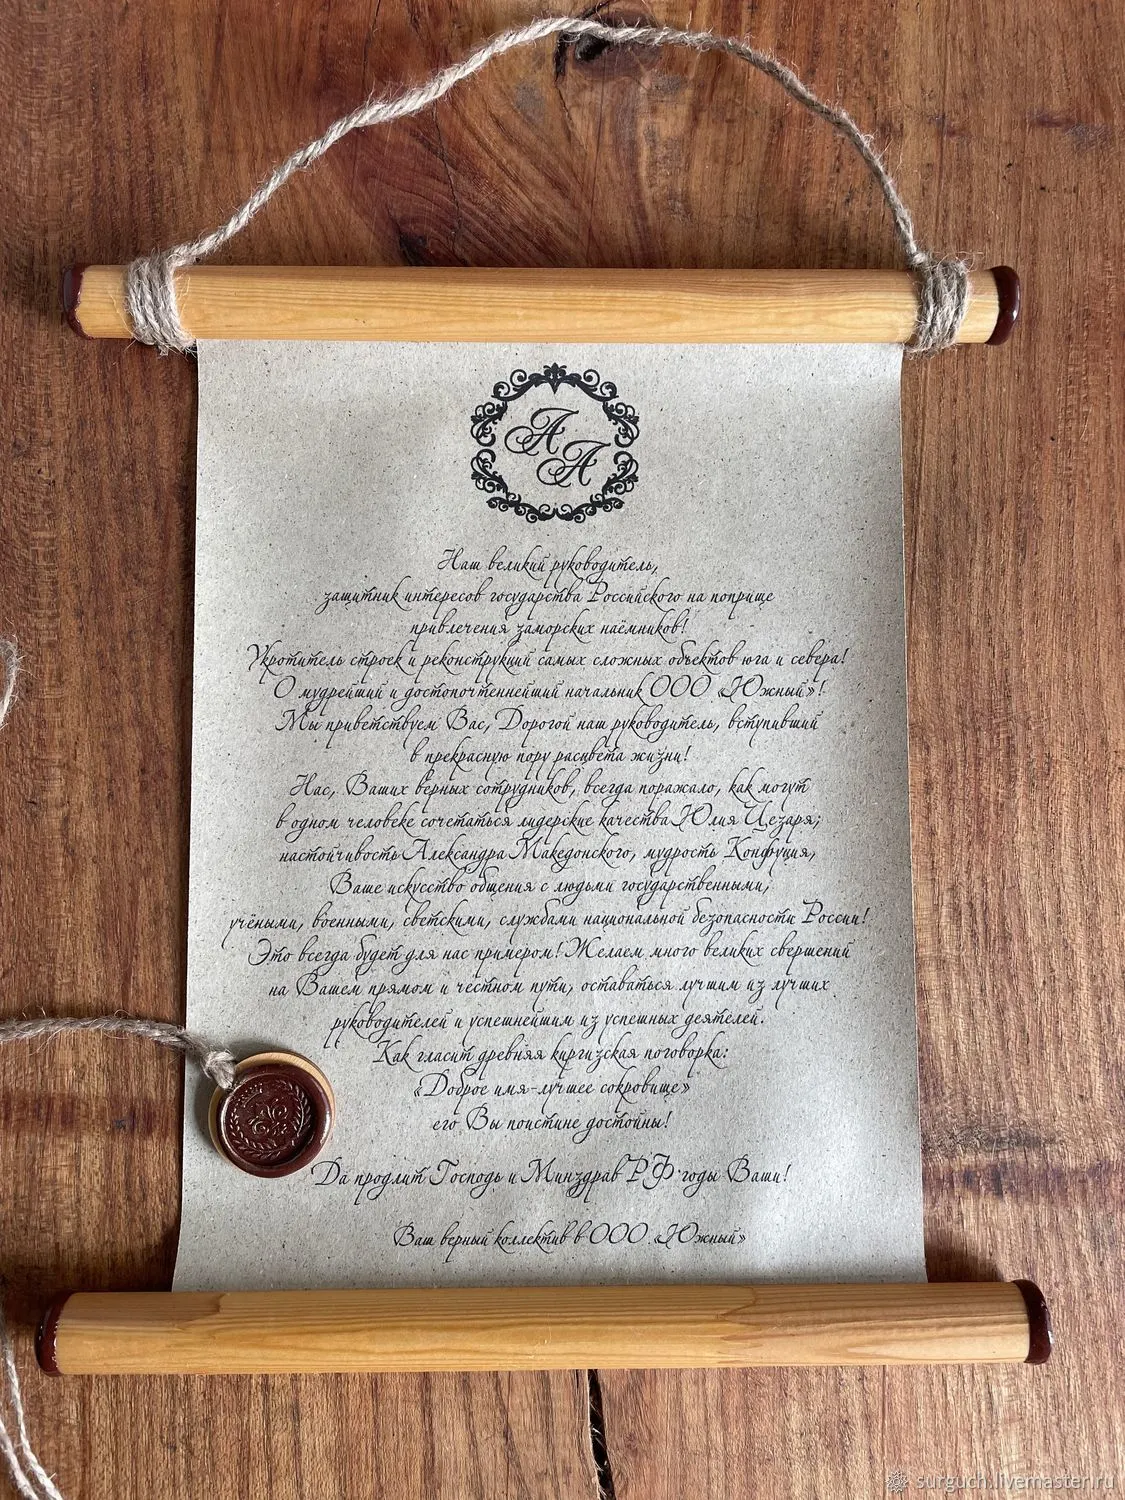 А
А
Наш великий руководитель,
защитник интересов государства Российского на поприще
привлечения заморских наёмников!
Укротитель строек и реконструкций самых сложных объектов юга и севера!
О мудрейший и достопочтеннейший начальник ООО «Южный»!
Мы приветствуем Вас, Дорогой наш руководитель, вступивший
в прекрасную пору расцвета жизни!
Нас, Ваших верных сотрудников, всегда поражало, как могут
в одном человеке сочетаться лидерские качества Юлия Цезаря;
настойчивость Александра Македонского, мудрость Конфуция,
Ваше искусство общения с людьми государственными;
учёными, военными, светскими, службами национальной безопасности России!
Это всегда будет для нас примером! Желаем много великих свершений
на Вашем прямом и честном пути, оставаться лучшим из лучших
руководителей и успешнейшим из успешных деятелей.
Как гласит древняя киргизская поговорка:
«Доброе имя-лучшее сокровище»
его Вы поистине достойны!
Да продлит Господь и Минздрав РФ годы Ваши!
Ваш верный коллектив в ООО «Южный»
surguch.livemaster.ru